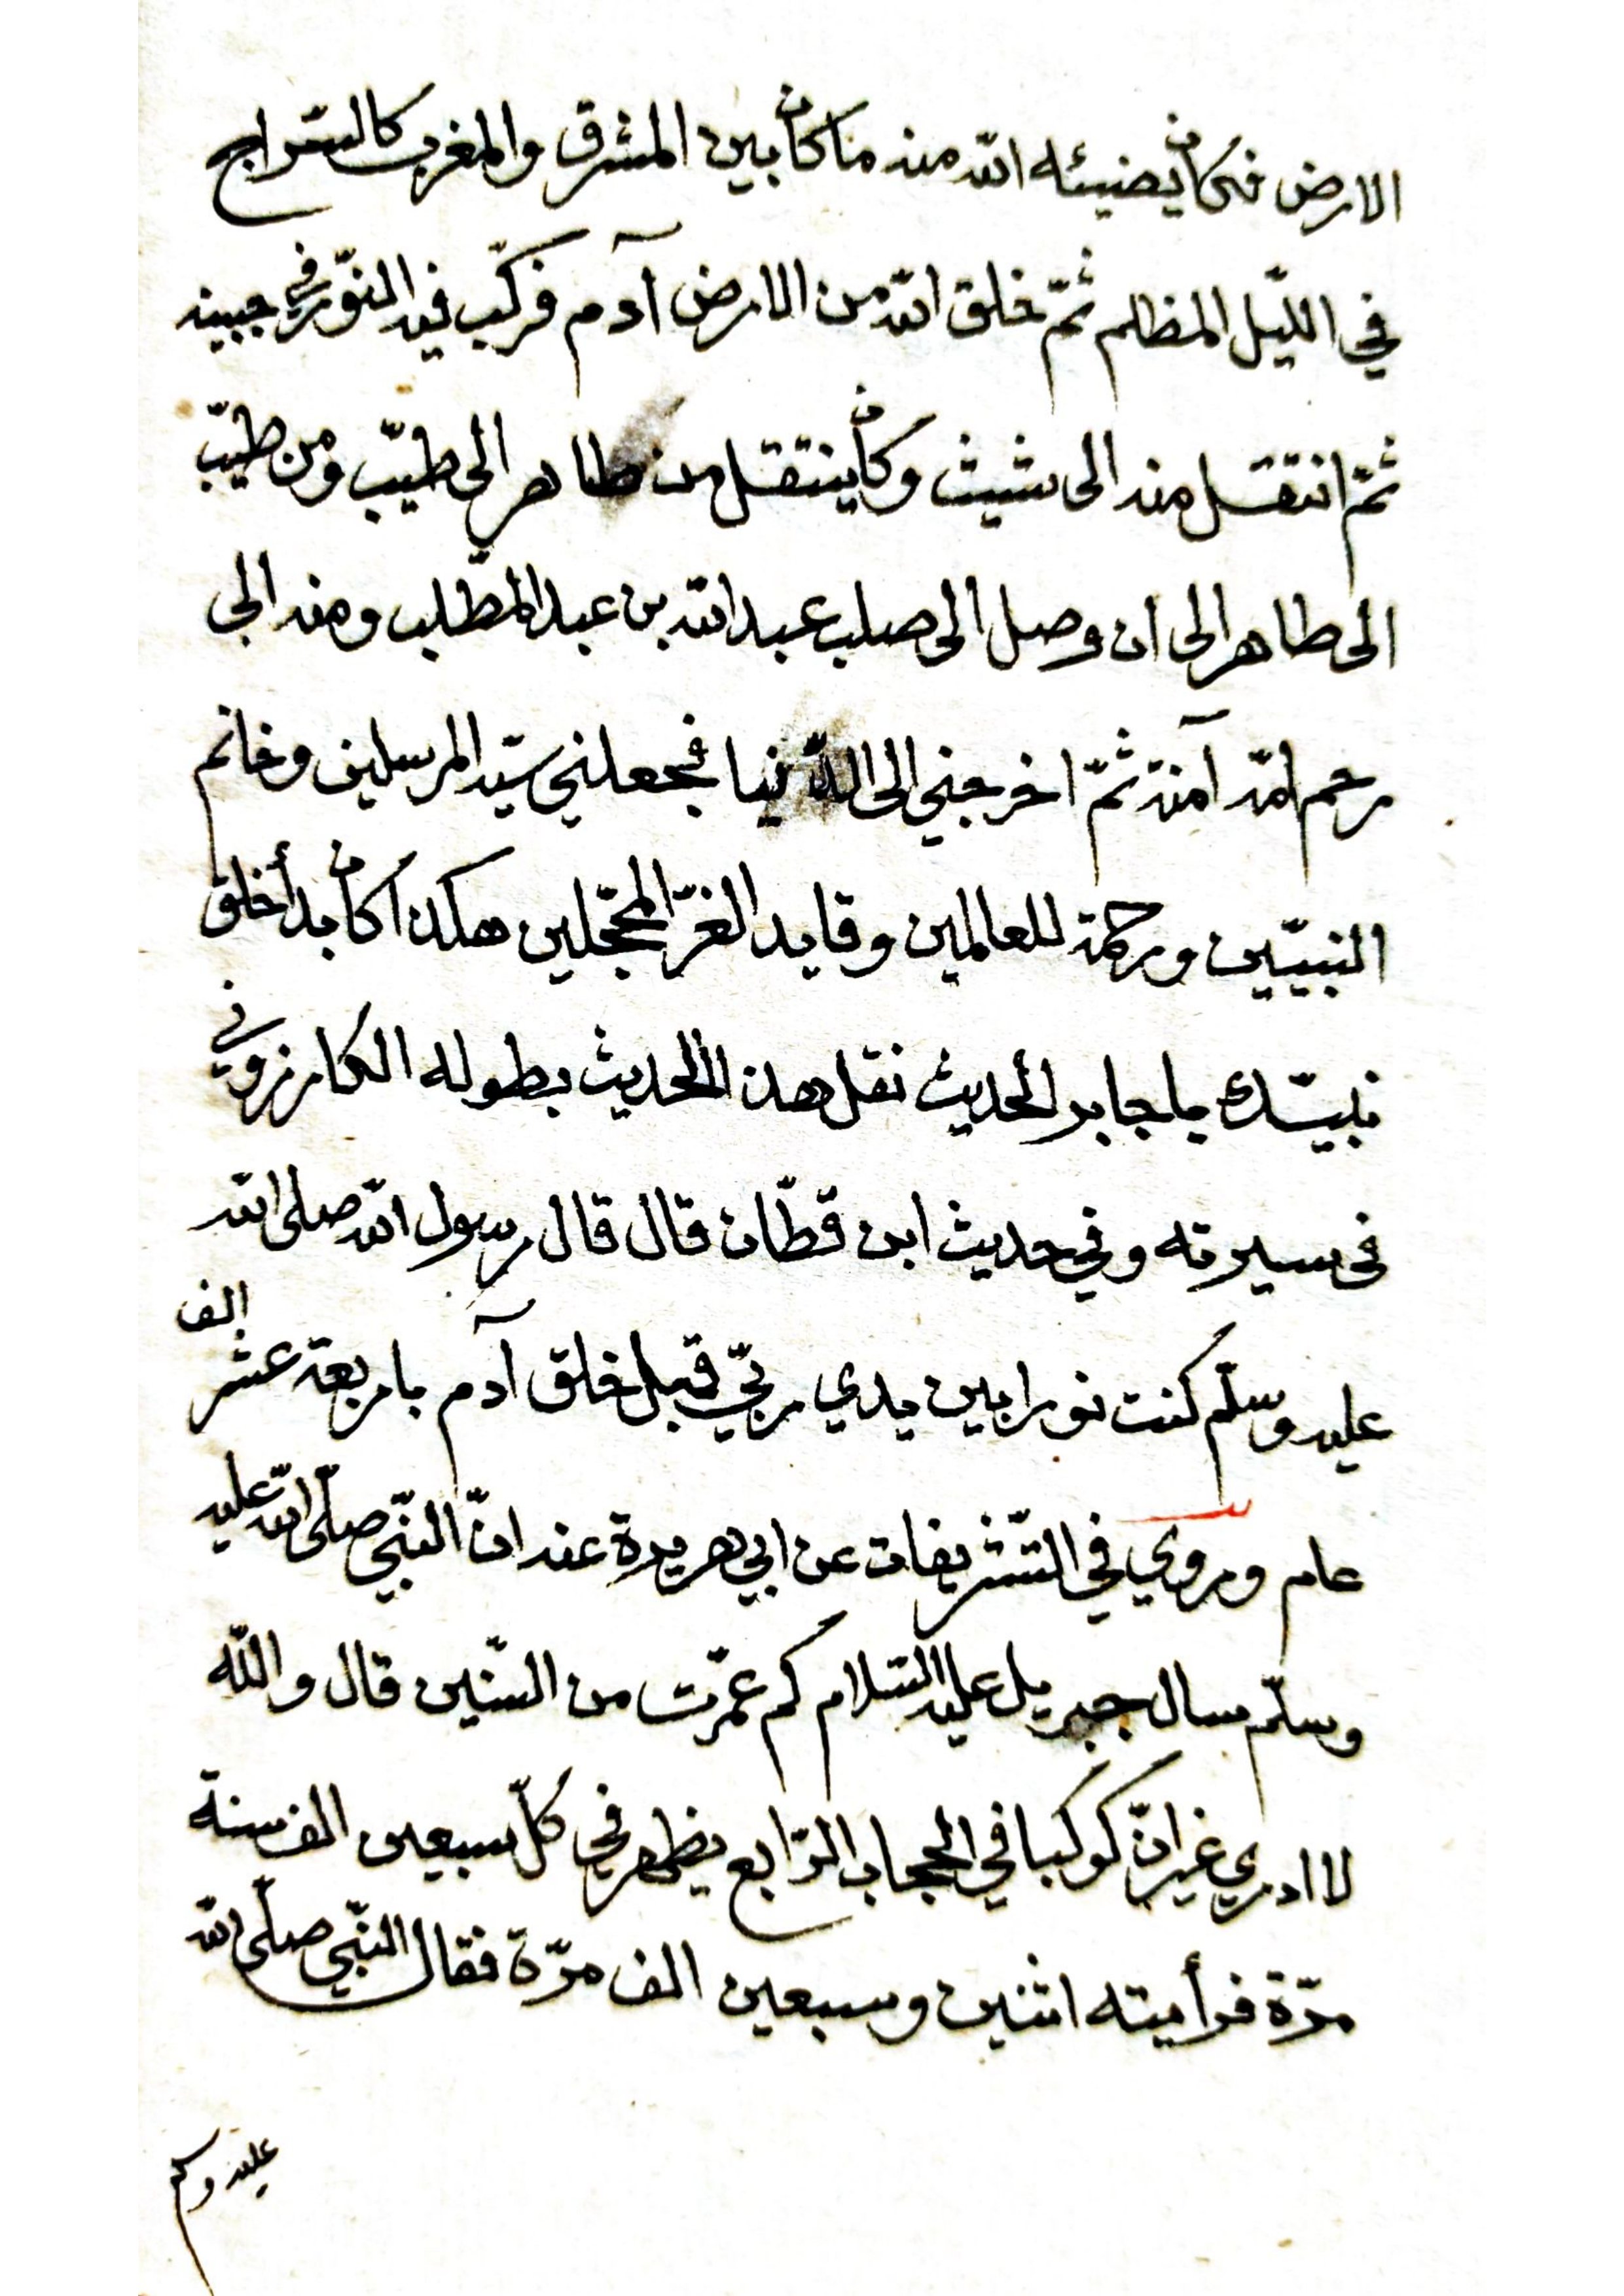 الارض فكان يضيئه الله منه ما كان بين المشرق والمغرب كالسّراج
في اللّيل المظلم ثمّ خلق الله من الارض آدم فركّب فيه النّور في جبينه
ثمّ انتقل منه الى شيث وكان ينتقل من طاهر الى طيّب ومن طيّب
الى طاهر الى ان وصل الى صلب عبد الله بن عبد المطّلب ومنه الى
رحم امّه آمنة ثمّ اخرجني الى الدّنيا فجعلني سيّد المرسلين وخاتم
النبيّين ورحمة للعالمين وقايد الغرّ المحجّلين هكذا كان بدأ خلق
نبيّك يا جابر الحديث نقل هذا الحديث بطوله الكارزوني
في سيرته وفي حديث ابن قطّان قال قال رسول الله صلى الله
عليه وسلّم كنت نورا بين يدي ربّي قبل خلق آدم باربعة عشر الف
عام وروي في التّشريفات عن ابي هريرة عنه انّ النّبي صلّى الله عليه
وسلّم سال جبريل عليه السّلام كم عمّرت من السّنين قال والله
لا ادري غير انّ كوكبا في الحجاب الرّابع يظهر في كلّ سبعين الف سنة
مرّة فرأيته اثنين وسبعين الف مرّة فقال النّبي صلّى الله
عليه وسلم